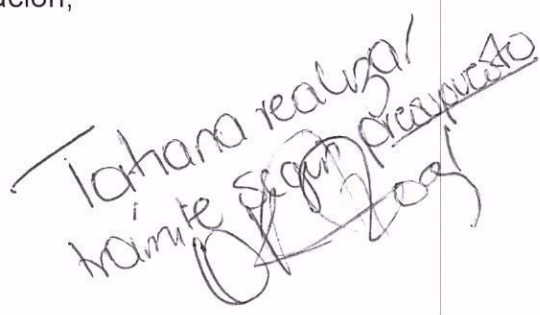 ación,
Tatiana realizar
trámite según presupuesto
OK